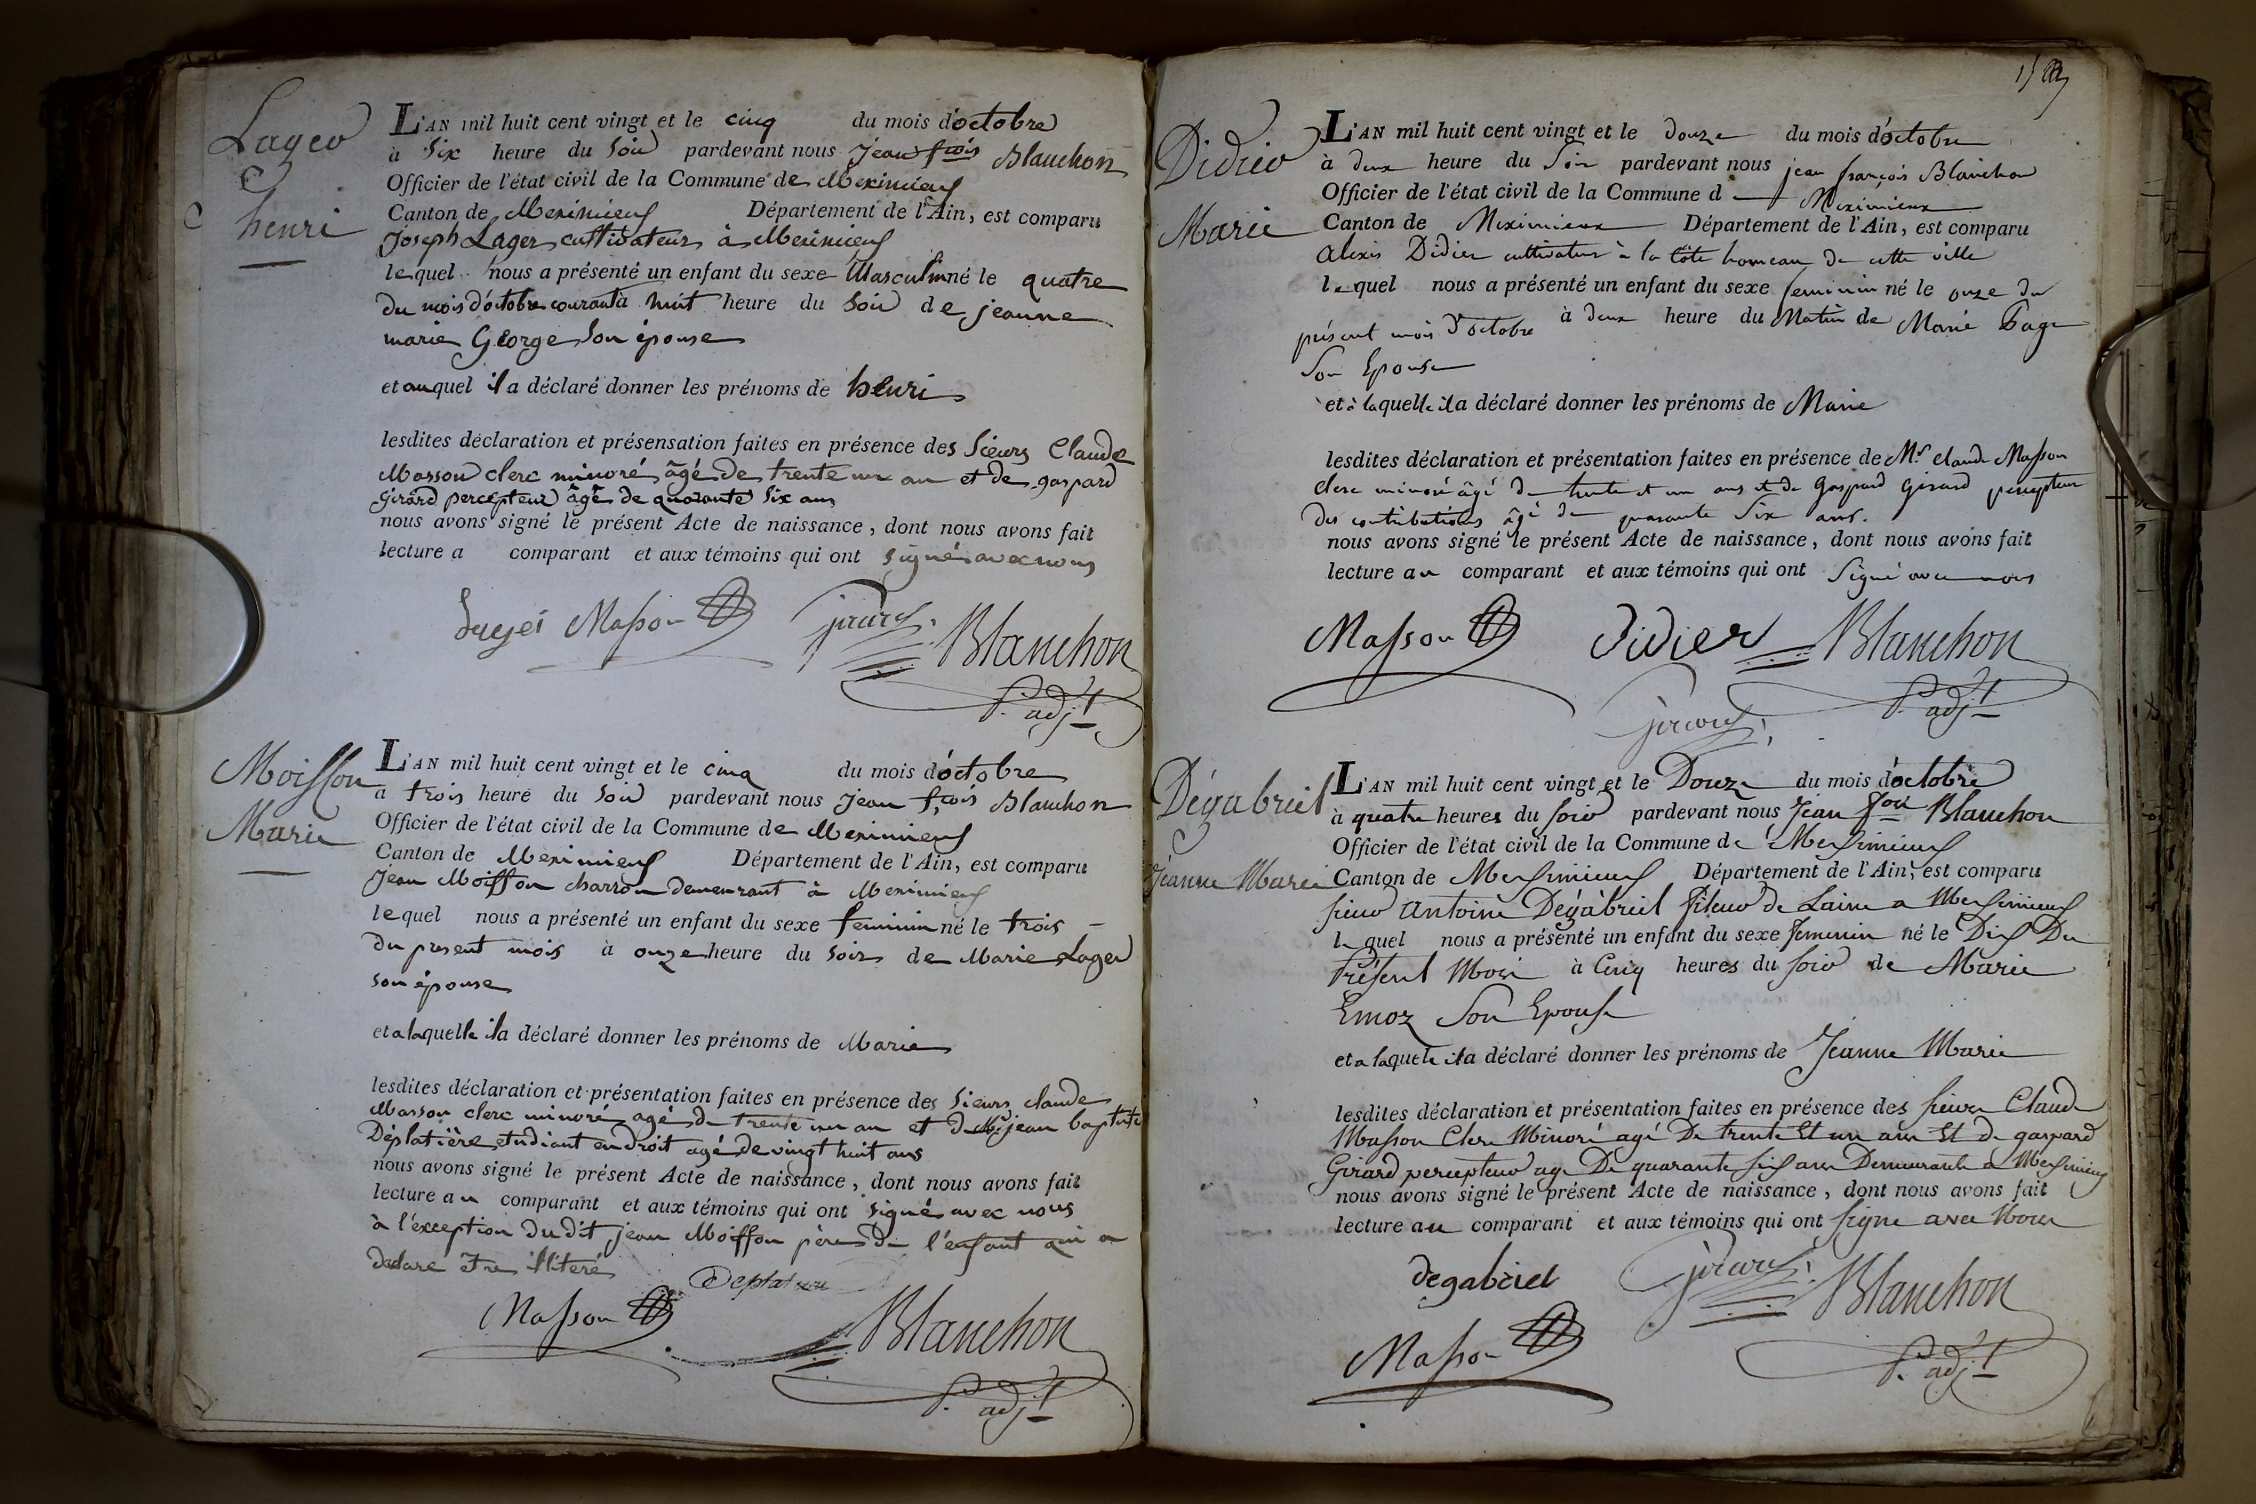 Lager
henri
L'AN mil huit cent vingt et le cinq du mois d'octobre
à six heure du soir pardevant nous Jean fcois Blanchon
Officier de l'état civil de la Commune de Meximieux
Canton de Meximieux Département de l'Ain, est comparu
Joseph Lager cultivateur à Meximieux
lequel nous a présenté un enfant du sexe Masculin né le quatre
du mois d'octobre courant à huit heure du soir de jeanne
marie George son épouse
et auquel il a déclaré donner les prénoms de henri
lesdites déclaration et présensation faites en présence des Sieurs Claude
Masson clerc minoré âgé de trente un an et de gaspard
Girard percepteur âgé de quarante six ans
nous avons signé le présent Acte de naissance, dont nous avons fait
lecture a comparant et aux témoins qui ont signés avec nous
Masson girard Blanchon
adjt
Moisson
Marie
L'AN mil huit cent vingt et le cinq du mois d'octobre
a trois heure du soir pardevant nous Jean fcois Blanchon
Officier de l'état civil de la Commune de Meximieux
Canton de Meximieux Département de l'Ain, est comparu
Jean Moisson charron demeurant à Meximieux
lequel nous a présenté un enfant du sexe feminin né le trois
du present mois à onze heure du soir de Marie Lager
son épouse
et a laquelle il a déclaré donner les prénoms de Marie
lesdites déclaration et présentation faites en présence des Sieurs claude
Masson clerc minoré agé de trente un an et de jean baptiste
Déplatière etudiant en droit agé de vingt huit ans
nous avons signé le présent Acte de naissance, dont nous avons fait
lecture au comparant et aux témoins qui ont signé avec nous
à l'exception du dit jean Moisson père de l'enfant qui a
declare être illiteré
Deplatiere
Masson Blanchon
adjt
Didier
Marie
L'AN mil huit cent vingt et le douze du mois d'octobre
à deux heure du soir pardevant nous jean françois Blanchon
Officier de l'état civil de la Commune d Meximieux
Canton de Meximieux Département de l'Ain, est comparu
Alexis Didier cultivateur à la côte hameau de cette ville
lequel nous a présenté un enfant du sexe feminin né le onze du
présent mois d'octobre à deux heure du Matin de Marie Page
son Epouse
et à laquelle il a déclaré donner les prénoms de Marie
lesdites déclaration et présentation faites en présence de Mr Claude Masson
clerc minoré âgé de trente et un ans et de Gaspard Girard percepteur
des contributions âgé de quarante six ans.
nous avons signé le présent Acte de naissance, dont nous avons fait
lecture au comparant et aux témoins qui ont signé avec nous
Masson Didier Blanchon
girard adjt
Dégabriel
Jeanne Marie
L'AN mil huit cent vingt et le Douze du mois d'octobre
à quatre heures du soir pardevant nous Jean fois Blanchon
Officier de l'état civil de la Commune de Mersimieux
Canton de Mersimieux Département de l'Ain, est comparu
sieur Antoine Dégabriel fileur de Laine a Mersimieux
lequel nous a présenté un enfant du sexe femenin né le Dix Du
Présent Mois à Cinq heures du soir de Marie
Emoz Son Epouse
et a laquele il a déclaré donner les prénoms de Jeanne Marie
lesdites déclaration et présentation faites en présence des sieurs Claude
Masson Clerc Minoré agé De trente Et un ans Et de gaspard
Girard percepteur age De quarante six ans Demeurants a Mersimieux
nous avons signé le présent Acte de naissance, dont nous avons fait
lecture au comparant et aux témoins qui ont signe avec Nous
degabriel girard Blanchon
Masson adjt